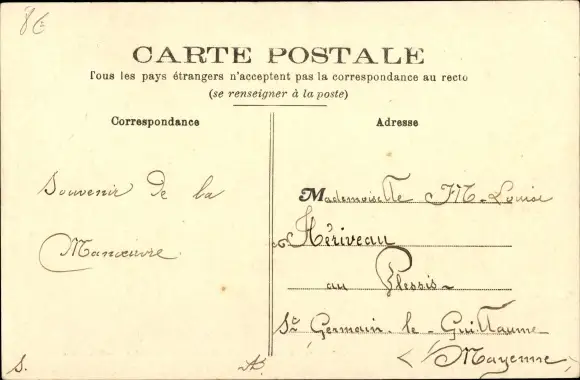 8€
CARTE POSTALE
Tous les pays étrangers n'acceptent pas la correspondance au recto
(se renseigner à la poste)
Correspondance
Souvenir de la
Manœuvre
S.
Adresse
Mademoiselle M-Louise
Hériveau
au Plessis
St Germain-le-Guillaume
Mayenne